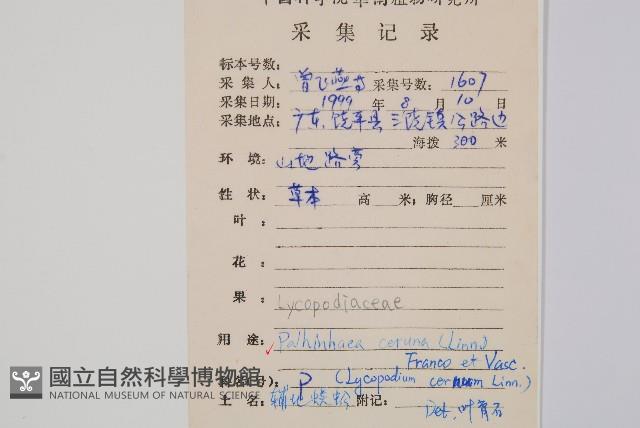 采集记录
标本号数：
采集人：曾飞燕等 采集号数：1607
采集日期：1999年8月10日
采集地点：广东饶平县三饶镇公路边
海拨300米
环境：山地路旁
性状：草本 高 米；胸径 厘米
叶：
花：
果：Lycopodiaceae
用途：Palhinhaea cernua (Linn)
Franco et Vasc.
号)：P (Lycopodium cernuum Linn.)
土名：铺地蜈蚣 附记：
Det. 叶育石
國立自然科學博物館
NATIONAL MUSEUM OF NATURAL SCIENCE